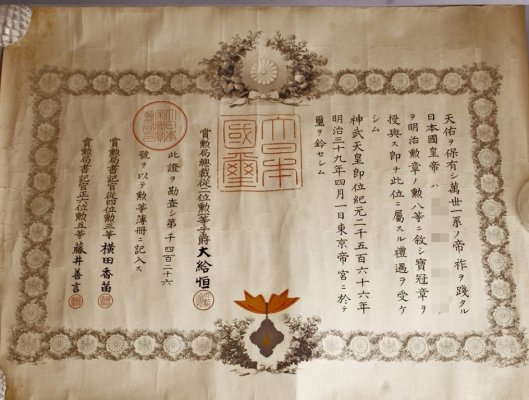 天佑ヲ保有シ萬世一系ノ帝祚ヲ踐タル
日本國皇帝ハ
ヲ明治勲章ノ勲八等ニ敘シ寶冠章ヲ
授與ス即チ此位ニ屬スル禮遇ヲ受ケ
シム
神武天皇即位紀元二千五百六十六年
明治三十九年四月一日東京帝宮ニ於テ
璽ヲ鈐セシム
大日本
國璽
賞勲局總裁從二位勲一等子爵大給恒
此證ヲ勘査シ第千四百二十六
號ヲ以テ勲等簿冊ニ記入ス
賞勲局書記官從四位勲三等横田香苗
賞勲局書記官正六位勲五等藤井善言